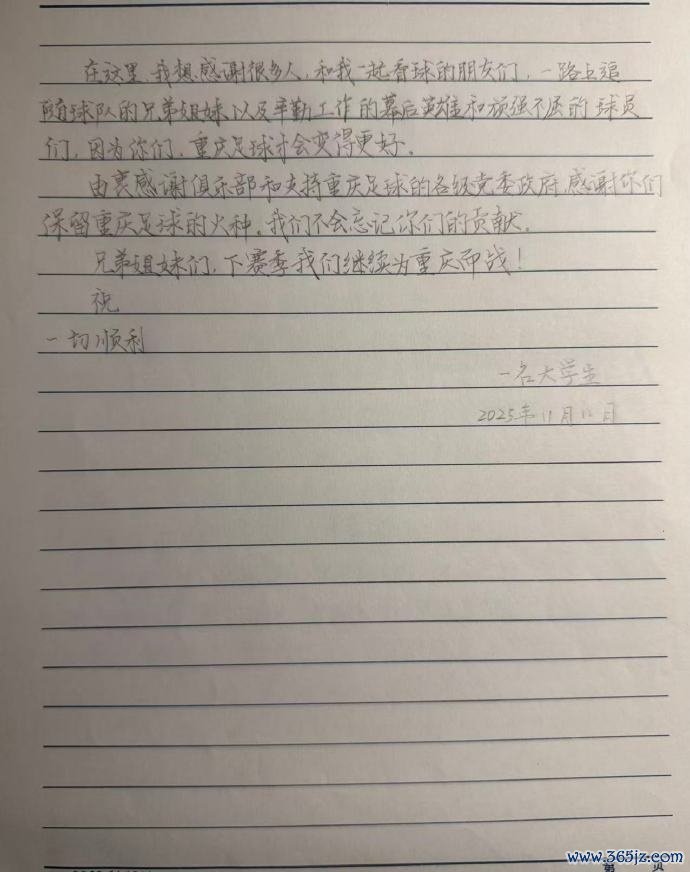 在这里,我想感谢很多人,和我一起看球的朋友们,一路上追
随球队的兄弟姐妹以及辛勤工作的幕后英雄和顽强不屈的球员
们,因为你们,重庆足球才会变得更好。
由衷感谢俱乐部和支持重庆足球的各级党委政府,感谢你们
保留重庆足球的火种。我们不会忘记你们的贡献。
兄弟姐妹们,下赛季我们继续为重庆而战!
祝
一切顺利
一名大学生
2025年11月12日
www.365jz.com
第 页